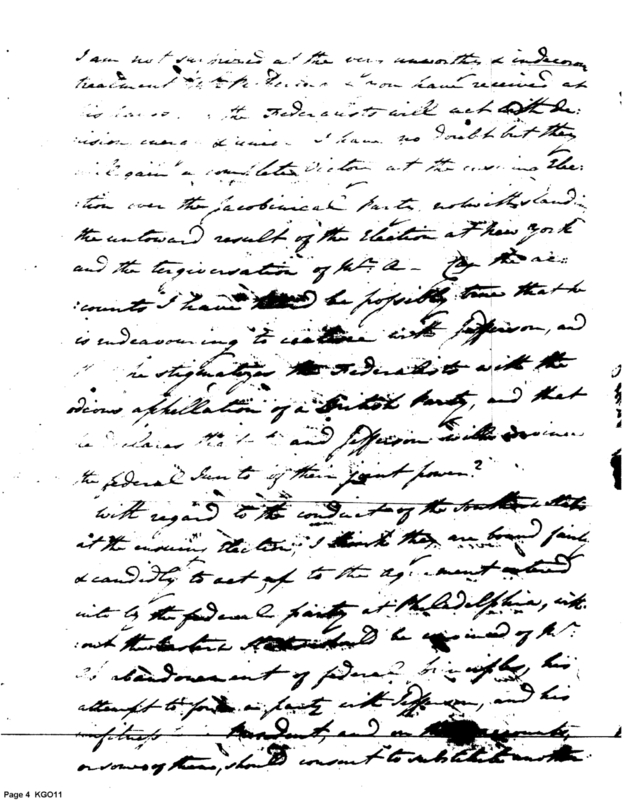 I am not surprised at the very unworthy & indecorous
treatment have received at
the Federalists will act with de:
cision I have no doubt but they
will gain a complete Victory at the ensuing Elec:
:tion over the Jacobinical Party, notwithstanding
the untoward result of the Election at New York
and the tergiversation of Mr. A – Can the ac:
:counts I have be possibly true that he
is endeavouring to with Jefferson, and
he stigmatizes the Federalists with the
odious appellation of a British Party, and that
he declares that he and Jefferson will convince
the federal Junto of their joint power?
With regard to the conduct of the Southern States
at the ensuing election, I think they are bound fairly
& candidly to act up to the agreement entered
into by the federal party at Philadelphia, with:
:out the Eastern States should be convinced of Mr.
A's abandonment of federal principles, his
attempt to form a party with Jefferson, and his
unfitness President, and on accounts,
or some of them, should consent to substitute another
Page 4 KGO11